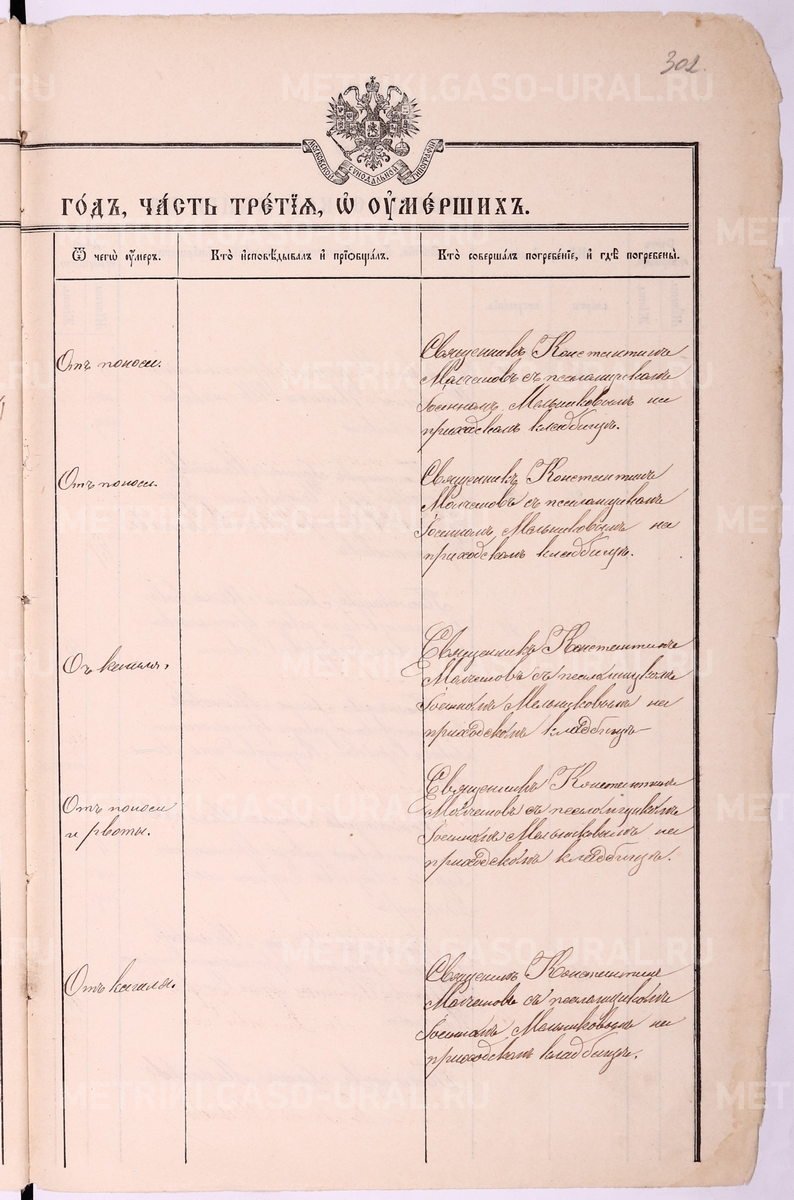 302.
МОСКОВСКОЙ СѴНОДАЛЬНОЙ ТИПОГРАФІИ
METRIKI.GASO-URAL.RU
ГО́ДЪ, ЧА́СТЬ ТРЕ́ТІѦ, Ѡ҆ ОУ҆МЕ́РШИХЪ.
Ѿ чегѡ̀ ᲂу҆́меръ.
Кто̀ и҆сповѣ́дывалъ и҆ прїѡбща́лъ.
Кто̀ соверша́лъ погребе́нїе, и҆ гдѣ̀ погребены̀.
Отъ поноса.
Священникъ Константинъ
Молчановъ съ псаломщикомъ
Іоанномъ Мельниковымъ на
приходскомъ кладбищѣ.
Отъ поноса.
Священникъ Константинъ
Молчановъ съ псаломщикомъ
Іоанномъ Мельниковымъ на
приходскомъ кладбищѣ.
Отъ кашля.
Священникъ Константинъ
Молчановъ съ псаломщикомъ
Іоанномъ Мельниковымъ на
приходскомъ кладбищѣ
Отъ поноса
и рвоты.
Священникъ Константинъ
Молчановъ съ псаломщикомъ
Іоанномъ Мельниковымъ на
приходскомъ кладбищѣ.
Отъ кашля.
Священникъ Константинъ
Молчановъ съ псаломщикомъ
Іоанномъ Мельниковымъ на
приходскомъ кладбищѣ.